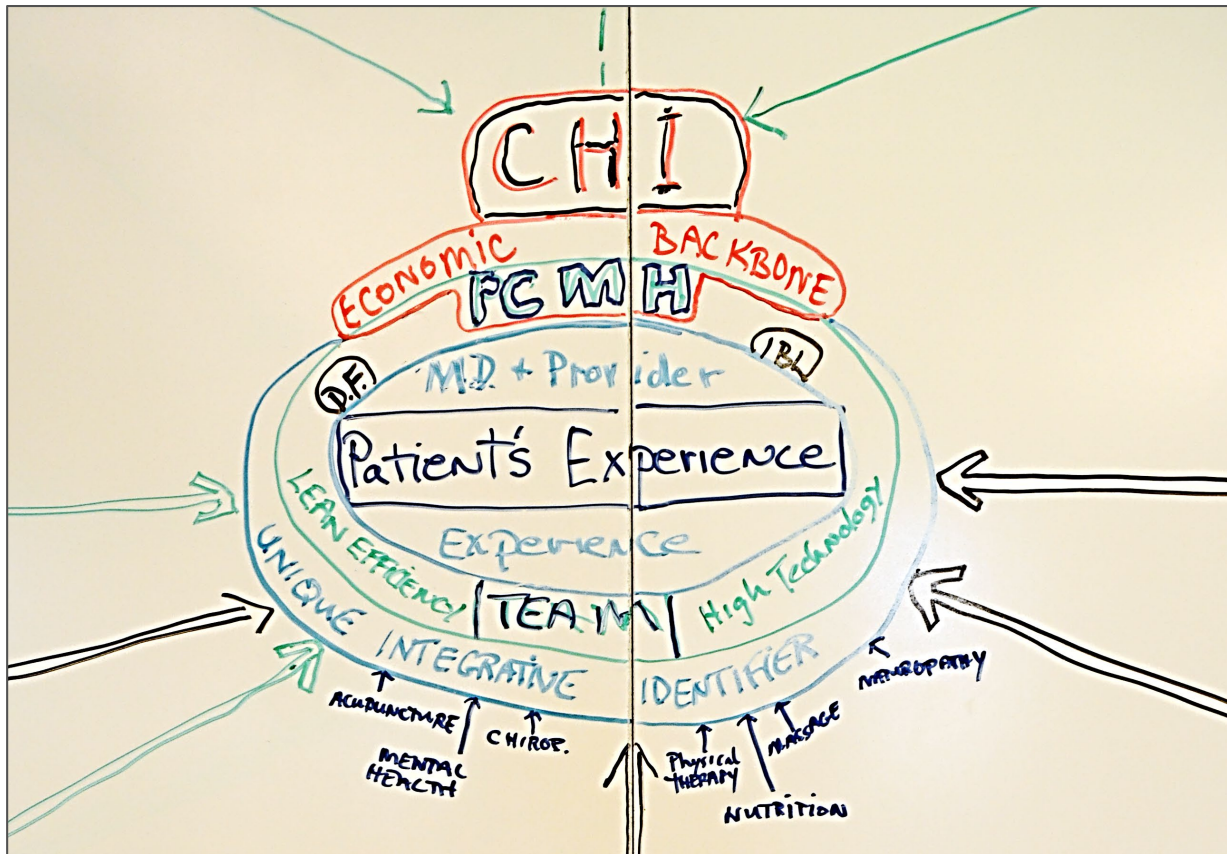 CHI
ECONOMIC BACKBONE
PCMH
D.F.
IBL
M.D. + Provider
Patient's Experience
Experience
LEAN EFFICIENCY
TEAM
High Technology
UNIQUE INTEGRATIVE IDENTIFIER
ACUPUNCTURE
MENTAL
HEALTH
CHIROP.
Physical
THERAPY
NUTRITION
MASSAGE